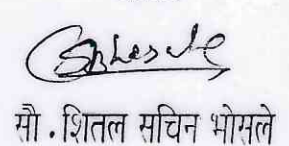 सौ . शितल सचिन भोसले